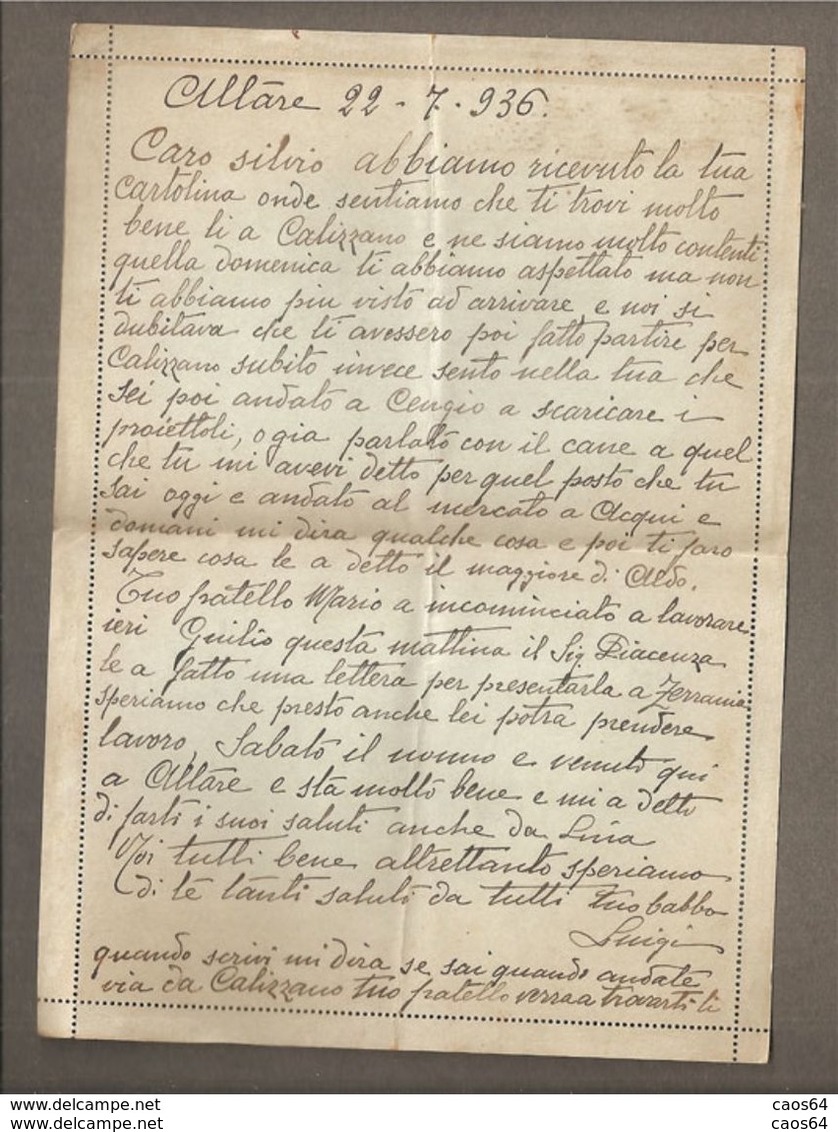 Altare 22 - 7 - 936.
Caro silvio abbiamo ricevuto la tua
Cartolina onde sentiamo che ti trovi molto
bene li a Calizzano e ne siamo molto contenti
quella domenica ti abbiamo aspettato ma non
ti abbiamo piu visto ad arrivare, e noi si
dubitava che ti avessero poi fatto partire per
Calizzano subito invece sento nella tua che
sei poi andato a Cengio a scaricare i
proiettoli, o gia parlato con il cane a quel
che tu mi avevi detto per quel posto che tu
sai oggi e andato al mercato a Acqui e
domani mi dira qualche cosa e poi ti faro
sapere cosa le a detto il maggiore di Aldo.
Tuo fratello Mario a incominciato a lavorare
ieri Guilio questa mattina il Sig. Piacenza
le a fatto una lettera per presentarla a Ferrania
speriamo che presto anche lei potra prendere
lavoro, Sabato il nonno e venuto qui
a Altare e sta molto bene e mi a detto
di farti i suoi saluti anche da Lina
Noi tutti bene altrettanto speriamo
di te tanti saluti da tutti tuo babbo
Luigi
quando scrivi mi dira se sai quando andate
via da Calizzano tuo fratello verra a trovarti li
Est. 1999 www.delcampe.net caos64